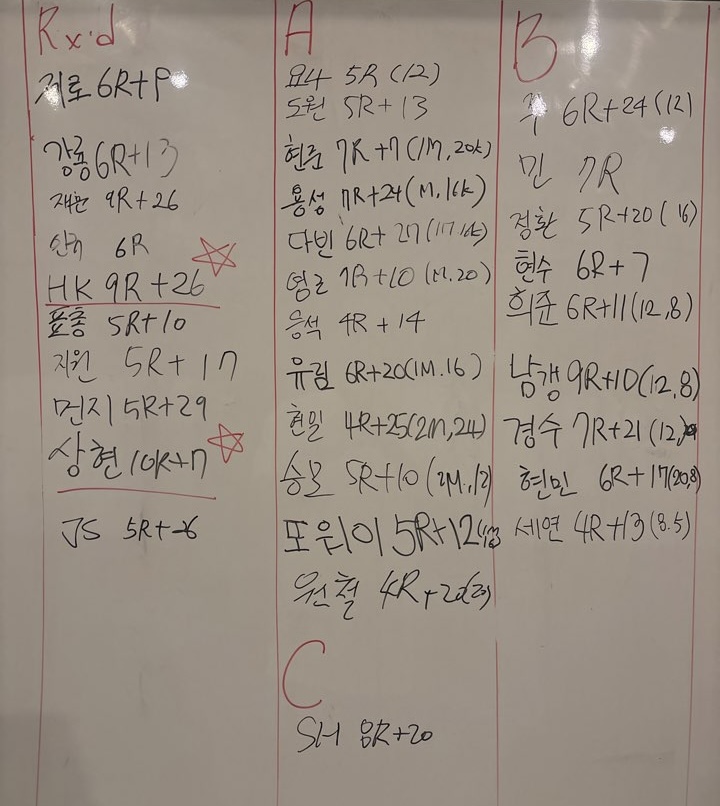 Rx'd
제로 6R+9
강룡 6R+13
재훈 9R+26
6R
HK 9R+26
표총 5R+10
지원 5R+17
먼지 5R+29
상현 10R+7
JS 5R+26
A
요나 5R (12)
도원 5R+13
현준 7R+7(1M, 20k)
용성 7R+24(M, 16k)
다빈 6R+27(1M 16k)
영근 7R+10 (M.20)
응석 4R+14
유림 6R+20(1M.16)
현일 4R+25(2M,24)
승모 5R+10(2M,12)
또위이 5R+12
원철 4R+20(20)
C
SH 8R+20
B
주 6R+24(12)
민 7R
정환 5R+20(16)
현수 6R+7
희준 6R+11(12,8)
남갱 9R+10(12,8)
경수 7R+21(12,
현민 6R+17(20,8)
세연 4R+13(8.5)